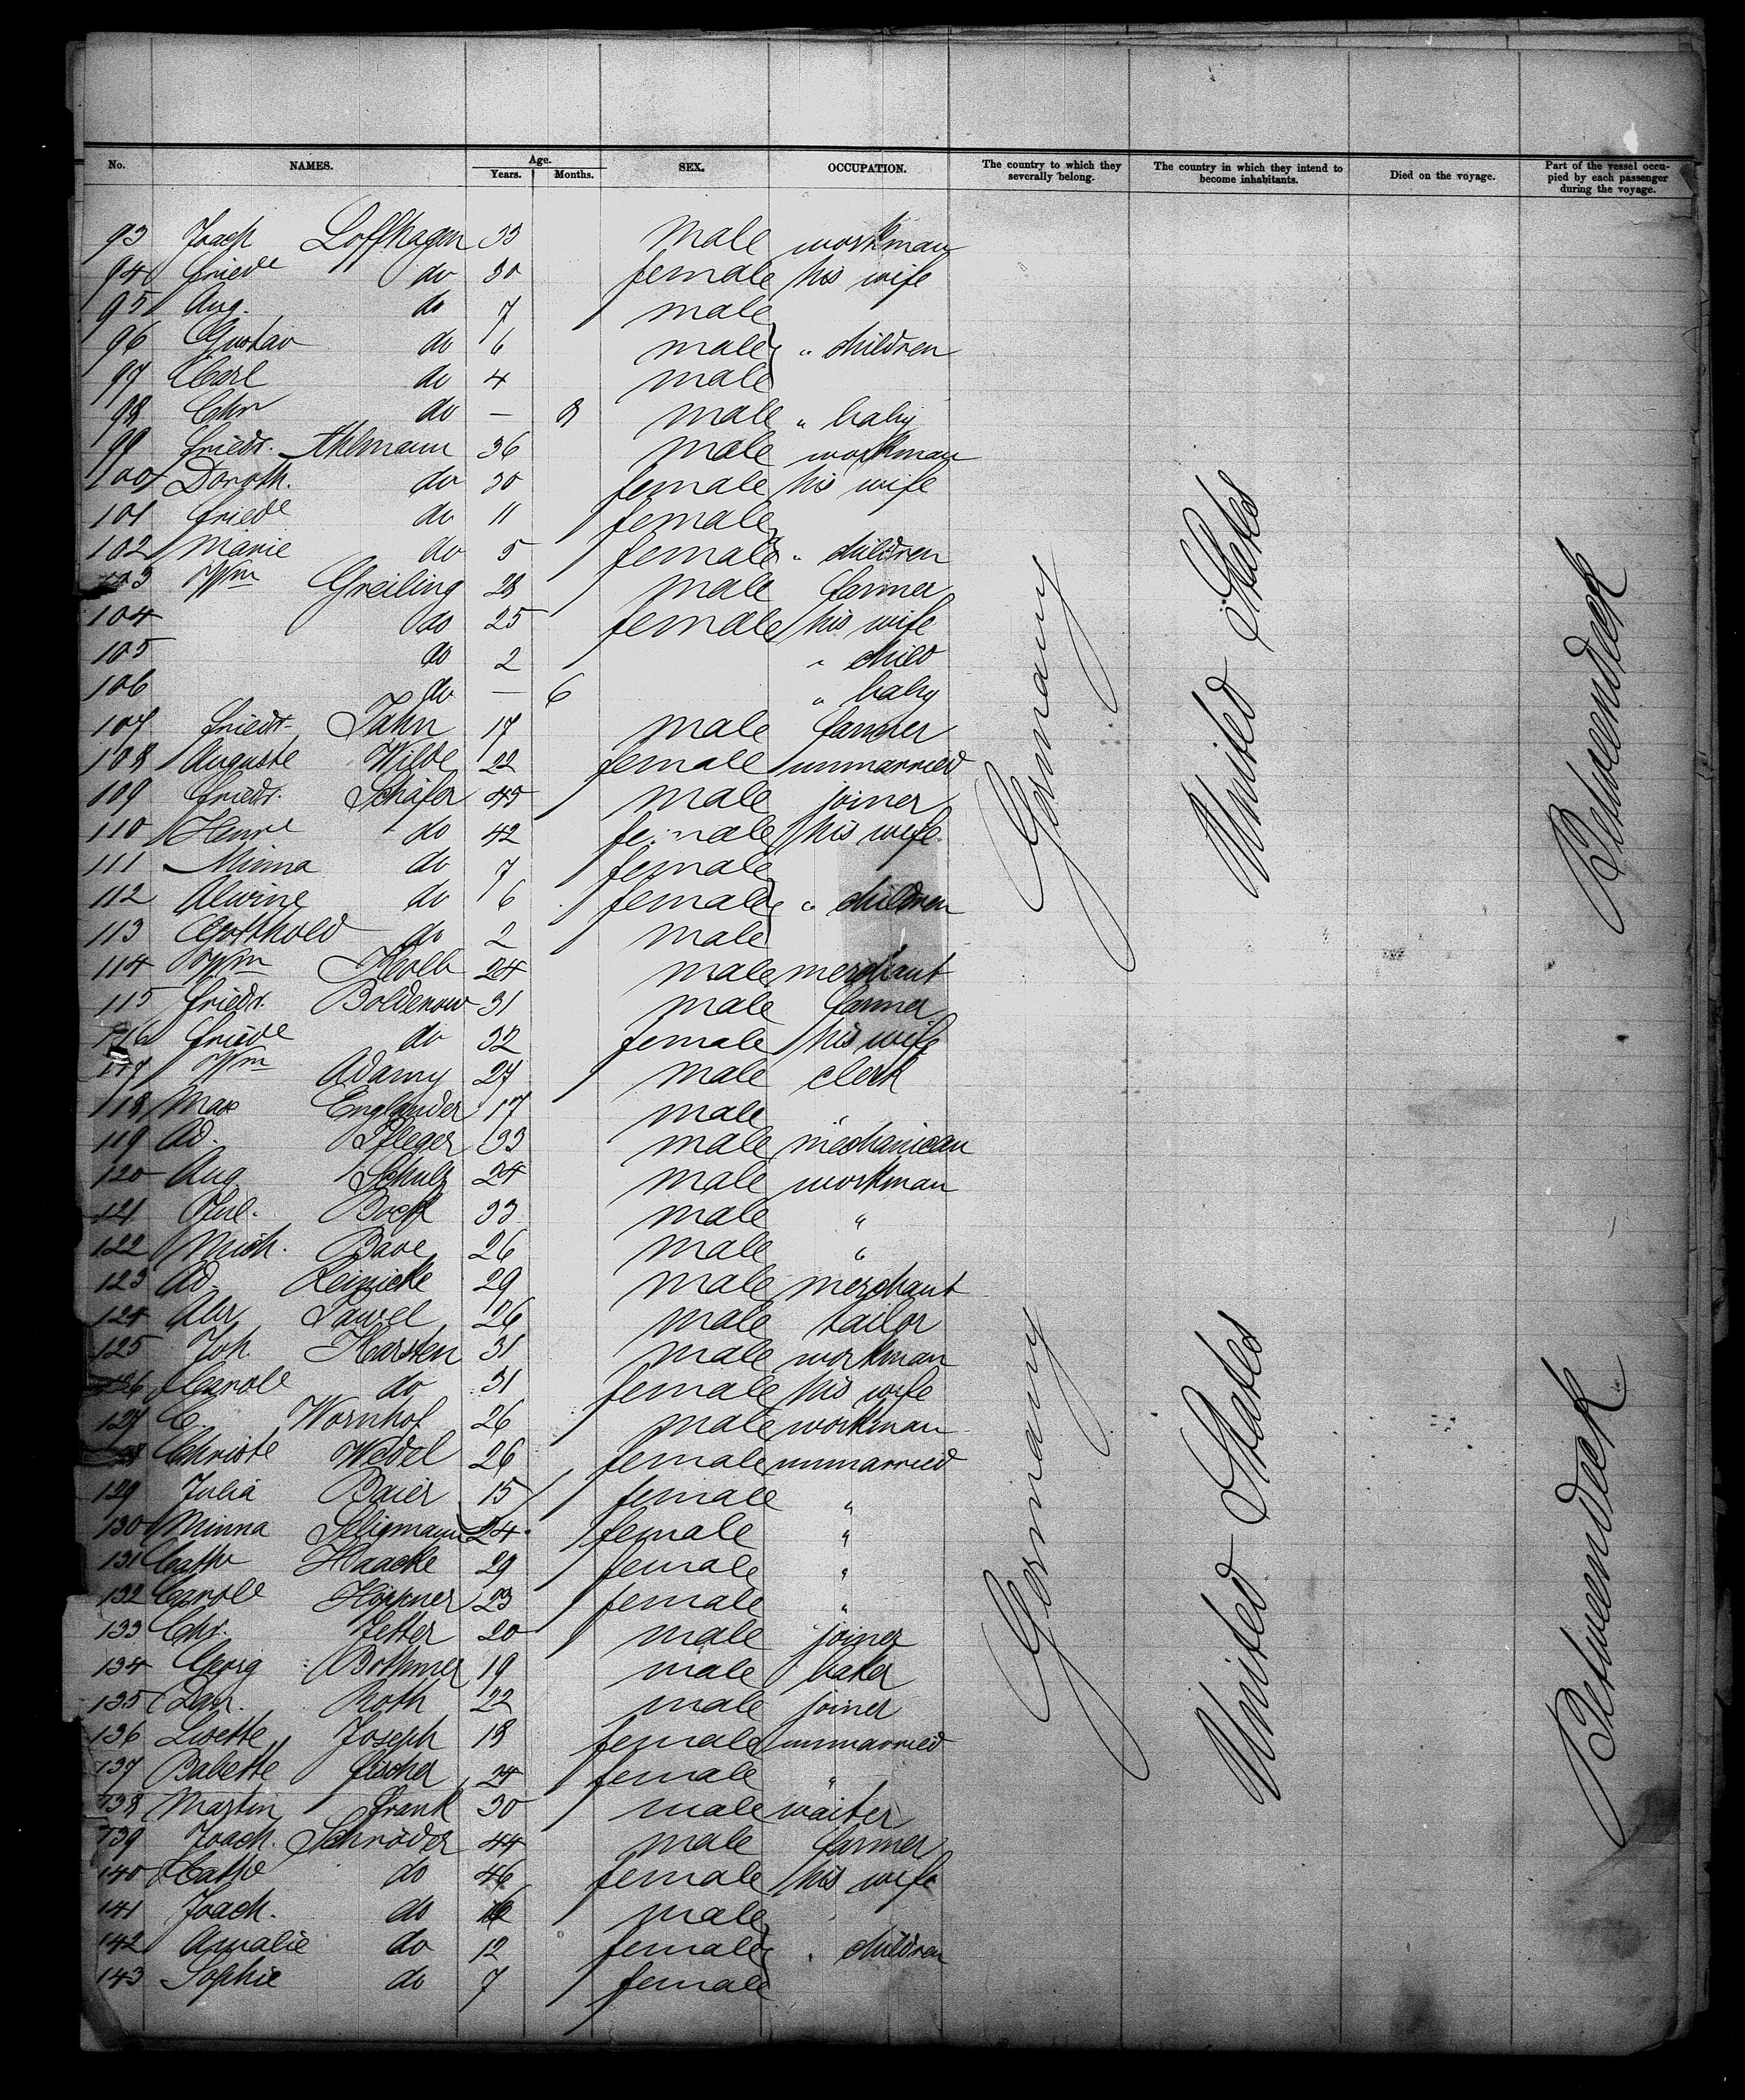 No. NAMES. Age. Years. Months. SEX. OCCUPATION. The country to which they severally belong. The country in which they intend to become inhabitants. Died on the voyage. Part of the vessel occupied by each passenger during the voyage.
93 Joach Loffhagen 33 male workman
94 Friede do 30 female his wife
95 Aug. do 7 male
96 Gustav do 6 male " children
97 Carl do 4 male
98 Chr do — 8 male " baby
99 Friedr. Ahlmann 36 male workman
100 Doroth. do 30 female his wife
101 Friede do 11 female
102 Marie do 5 female " children
103 Wm Greiling 28 male farmer
104 do 25 female his wife
105 do 2 " child
106 do — 6 " baby
107 Friedr. Jahn 17 male farmer
108 Auguste Wilde 22 female unmarried
109 Friedr. Schäfer 45 male joiner
110 Henre do 42 female his wife
111 Minna do 7 female
112 Alwine do 6 female " children
113 Gotthold do 2 male
114 Wm Kolb 24 male merchant
115 Friedr. Boldenow 31 male farmer
116 Friede do 32 female his wife
117 Wm Adamy 27 male clerk
118 Max Englander 17 male "
119 Ad. Pfleger 33 male mechanican
120 Aug. Schulz 24 male workman
121 Jul. Bock 33 male "
122 Mich. Bave 26 male "
123 Ad. Reinicke 29 male merchant
124 Abr Pawel 26 male tailor
125 Joh. Karsten 31 male workman
126 Carole do 31 female his wife
127 C. Wornhof 26 male workman
128 Christe Wedel 26 female unmarried
129 Julia Baier 15 female "
130 Minna Seligmann 24 female "
131 Cathe Haacke 29 female "
132 Carole Höppner 23 female "
133 Chr. Zetter 20 male joiner
134 Georg Bothmer 19 male baker
135 Roth 22 male joiner
136 Lisette Joseph 18 female unmarried
137 Babette Fischer 24 female "
138 Martin Frank 30 male waiter
139 Joach. Schröder 44 male farmer
140 Cathe do 46 female his wife
141 Joach. do male
142 Amalie do 12 female " children
143 Sophie do 7 female
Germany
United States
Betweendeck
Germany
United States
Betweendeck